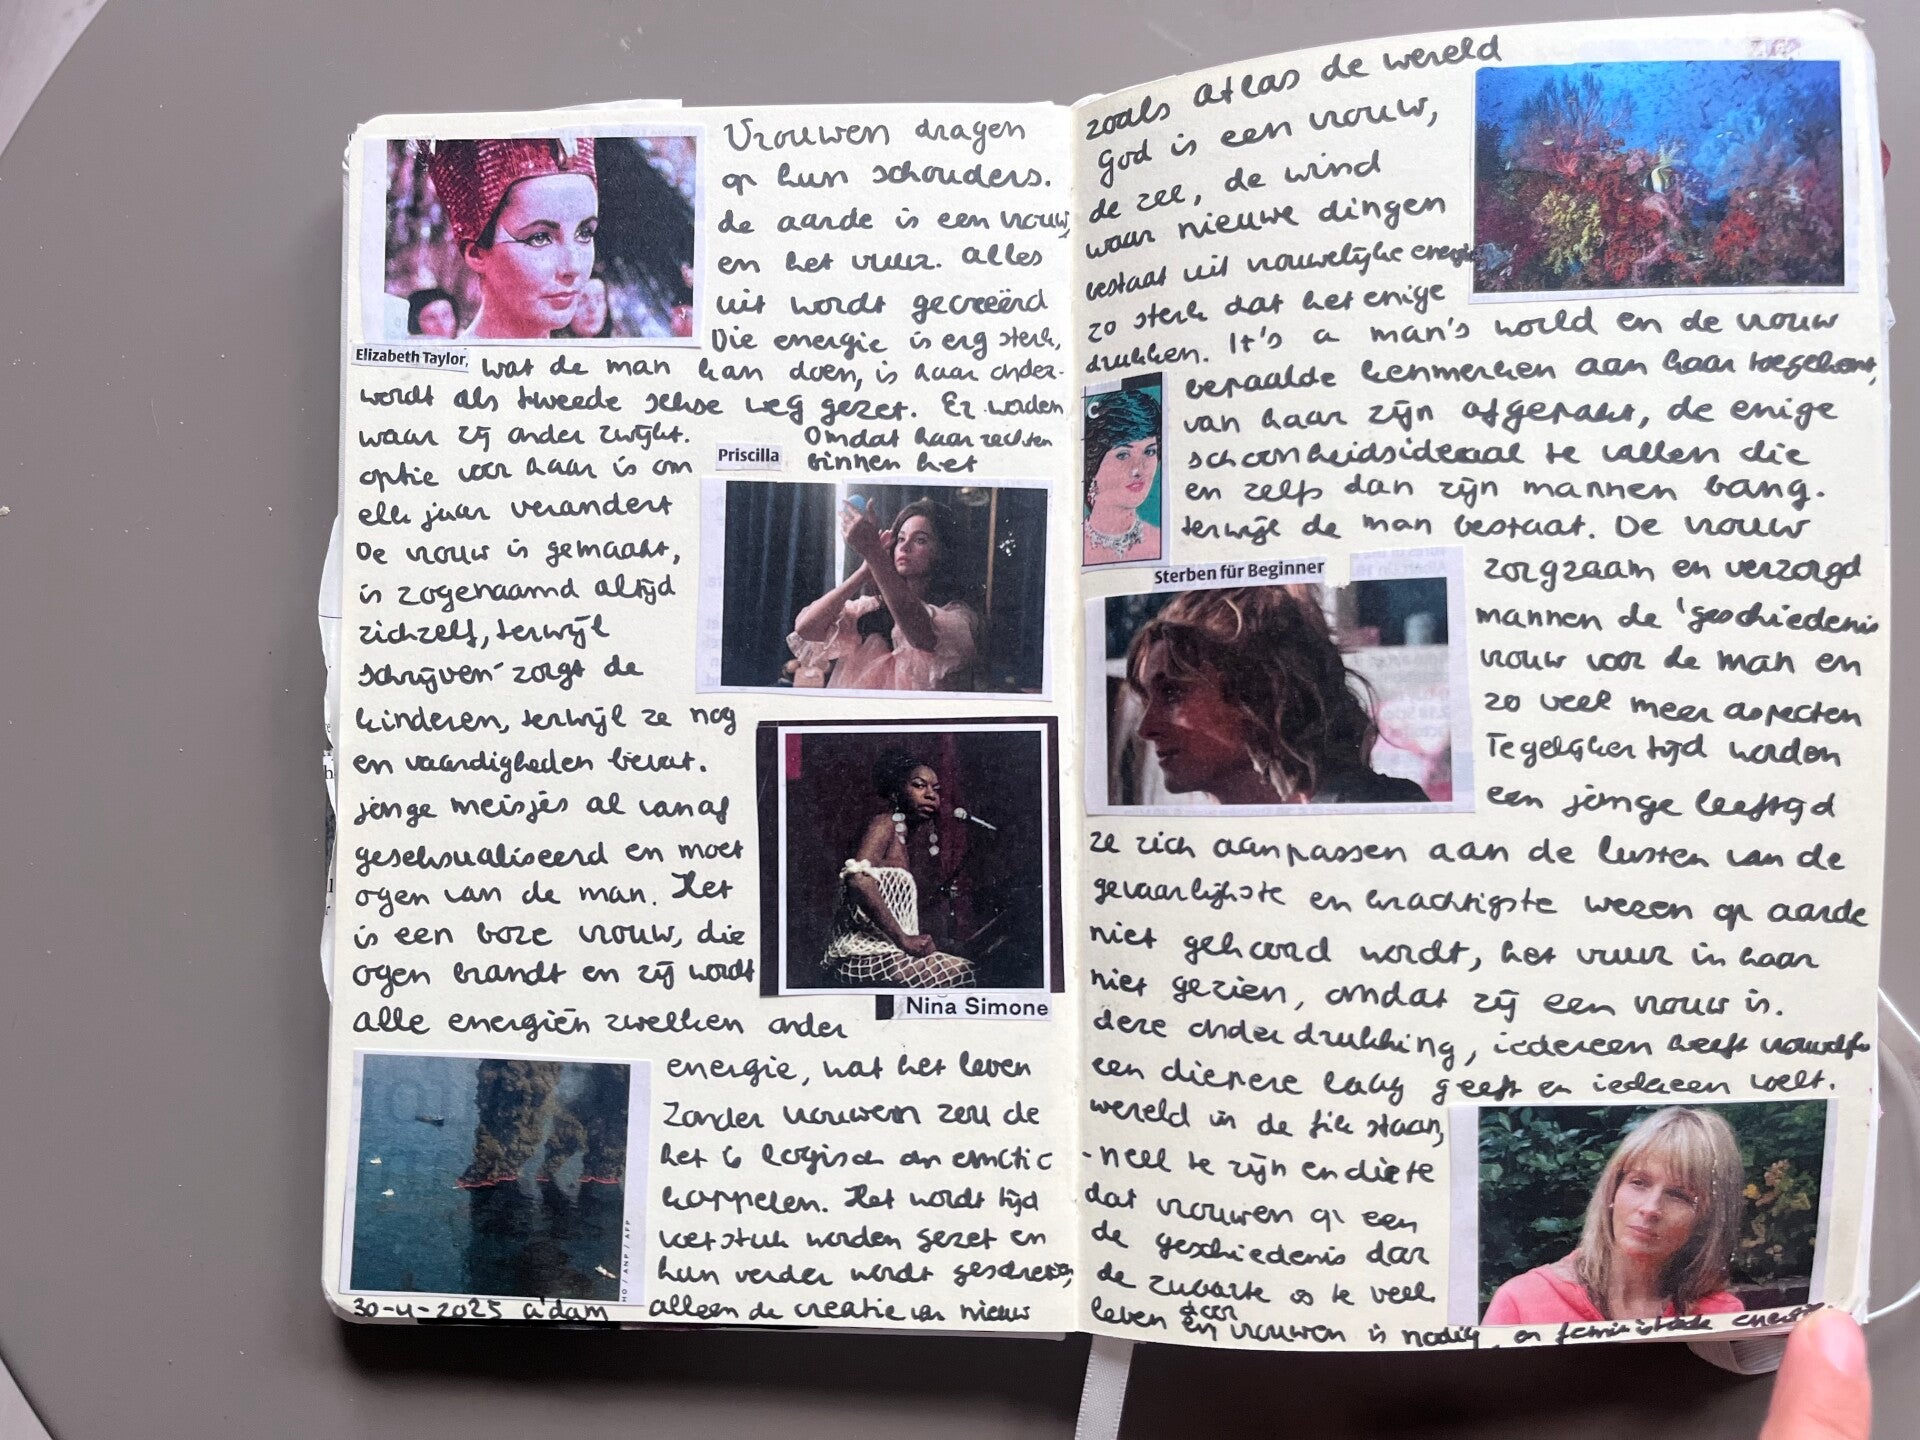 Vrouwen dragen
op hun schouders.
de aarde is een vrouw,
en het vuur. alles
uit wordt gecreëerd
Die energie is erg sterk,
Elizabeth Taylor,
wat de man kan doen, is haar onder-
wordt als tweede sekse weg gezet. Er worden
waar zij onder zwijkt.
Omdat haar rechten
Priscilla
binnen het
optie voor haar is om
elk jaar verandert
De vrouw is gemaakt,
is zogenaamd altijd
zichzelf, terwijl
schrijven' zorgt de
kinderen, terwijl ze nog
en vaardigheden bevat.
jonge meisjes al vanaf
geseksualiseerd en moet
ogen van de man. Het
is een boze vrouw, die
ogen brandt en zij wordt
Nina Simone
alle energieën zwelken onder
energie, wat het leven
Zonder vrouwen zou de
het logisch om emotio
koppelen. Het wordt tijd
voetstuk worden gezet en
hun verder wordt geschreven,
HO / ANP / AFP
30-4-2025 a'dam
alleen de creatie van nieuw
zoals atlas de wereld
God is een vrouw,
de zee, de wind
waar nieuwe dingen
bestaat uit vrouwelijke energie
zo sterk dat het enige
drukken. It's a man's world en de vrouw
bepaalde kenmerken aan haar toegekent,
van haar zijn afgepakt, de enige
schoonheidsideaal te vallen die
en zelfs dan zijn mannen bang.
terwijl de man bestaat. De vrouw
Sterben für Beginner
zorgzaam en verzorgd
mannen de 'geschiedenis
vrouw voor de man en
zo veel meer aspecten
Tegelijkertijd worden
een jonge leeftijd
ze zich aanpassen aan de lusten van de
gevaarlijkste en krachtigste wezen op aarde
niet gehoord wordt, het vuur in haar
niet gezien, omdat zij een vrouw is.
deze onderdrukking, iedereen heeft vrouwelijke
een diepere laag geeft en iedereen voelt.
wereld in de fik staan,
-neel te zijn en die te
dat vrouwen op een
de geschiedenis door
de zwaarte is te veel
leven door vrouwen is nodig, en feministische energie.